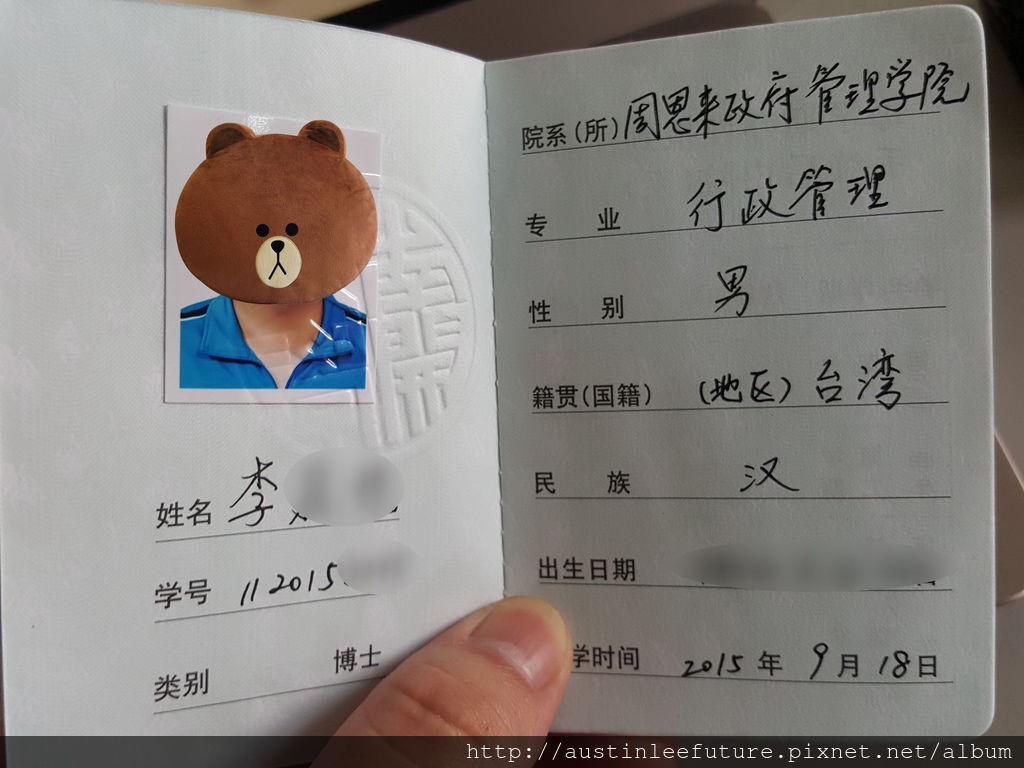 姓名 李
学号 112015
类别 博士
院系(所) 周恩来政府管理学院
专 业 行政管理
性 别 男
籍贯(国籍) (地区)台湾
民 族 汉
出生日期
学时间 2015年 9月18日
http://austinleefuture.pixnet.net/album